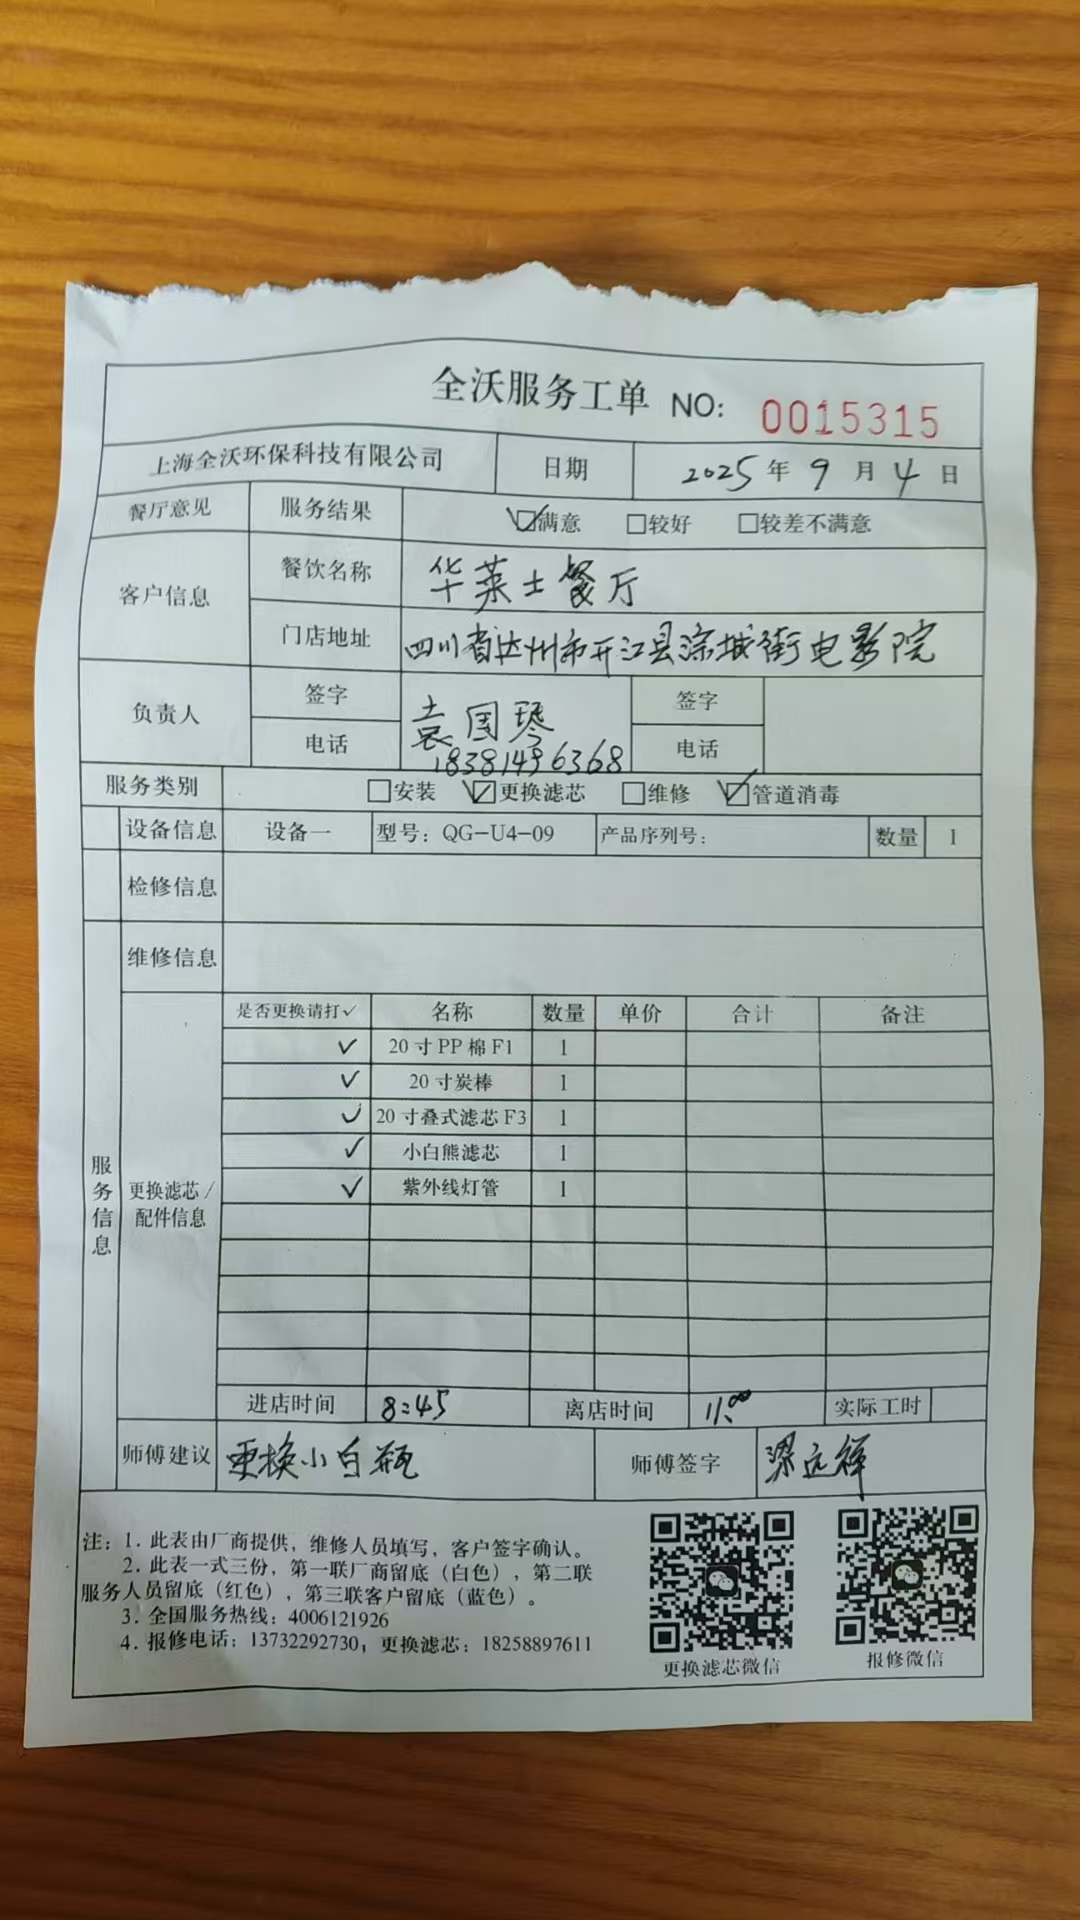 全沃服务工单 NO: 0015315
上海全沃环保科技有限公司 日期 2025年9月4日
餐厅意见 服务结果 ☑满意 □较好 □较差不满意
客户信息 餐饮名称 华莱士餐厅
门店地址 四川省达州市开江县淙城街电影院
负责人 签字 袁国琴 签字
电话 18381496368 电话
服务类别 □安装 ☑更换滤芯 □维修 ☑管道消毒
设备信息 设备一 型号：QG-U4-09 产品序列号： 数量 1
检修信息
维修信息
服务信息
更换滤芯/配件信息
是否更换请打✓ 名称 数量 单价 合计 备注
✓ 20寸PP棉F1 1
✓ 20寸炭棒 1
✓ 20寸叠式滤芯F3 1
✓ 小白熊滤芯 1
✓ 紫外线灯管 1
进店时间 8:45 离店时间 11:00 实际工时
师傅建议 更换小白瓶 师傅签字 梁远祥
注：1. 此表由厂商提供，维修人员填写，客户签字确认。
2. 此表一式三份，第一联厂商留底（白色），第二联
服务人员留底（红色），第三联客户留底（蓝色）。
3. 全国服务热线：4006121926
4. 报修电话：13732292730；更换滤芯：18258897611
更换滤芯微信 报修微信